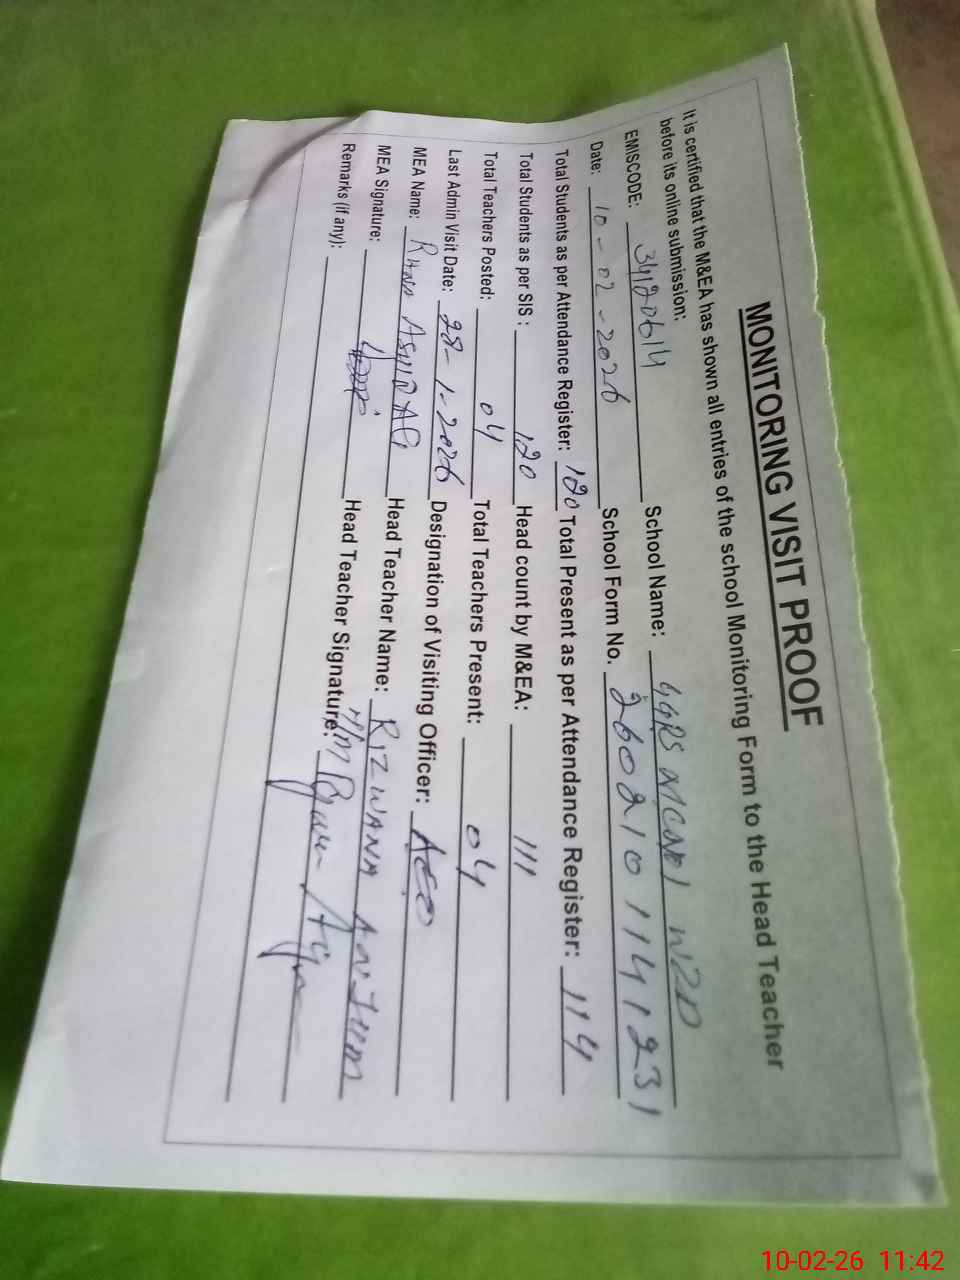 MONITORING VISIT PROOF
It is certified that the M&EA has shown all entries of the school Monitoring Form to the Head Teacher
before its online submission:
EMISCODE: 34120614 School Name: GGPS MCNo1 WZD
Date: 10-02-2026 School Form No. 2602101141231
Total Students as per Attendance Register: 120 Total Present as per Attendance Register: 114
Total Students as per SIS : 120 Head count by M&EA: 111
Total Teachers Posted: 04 Total Teachers Present: 04
Last Admin Visit Date: 28-1-2026 Designation of Visiting Officer: AEO
MEA Name: RANA ASHFAQ Head Teacher Name: RIZWANA ANJUM
MEA Signature: Head Teacher Signature: H/M
Remarks (if any):
10-02-26 11:42